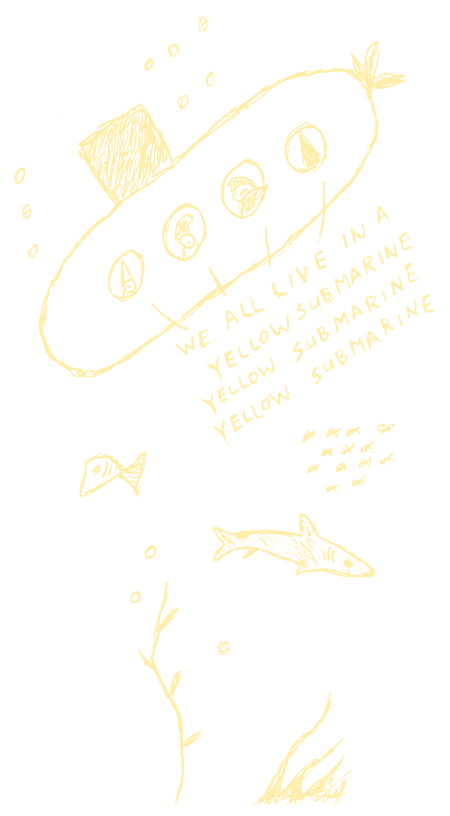 WE ALL LIVE IN A
YELLOW SUBMARINE
YELLOW SUBMARINE
YELLOW SUBMARINE